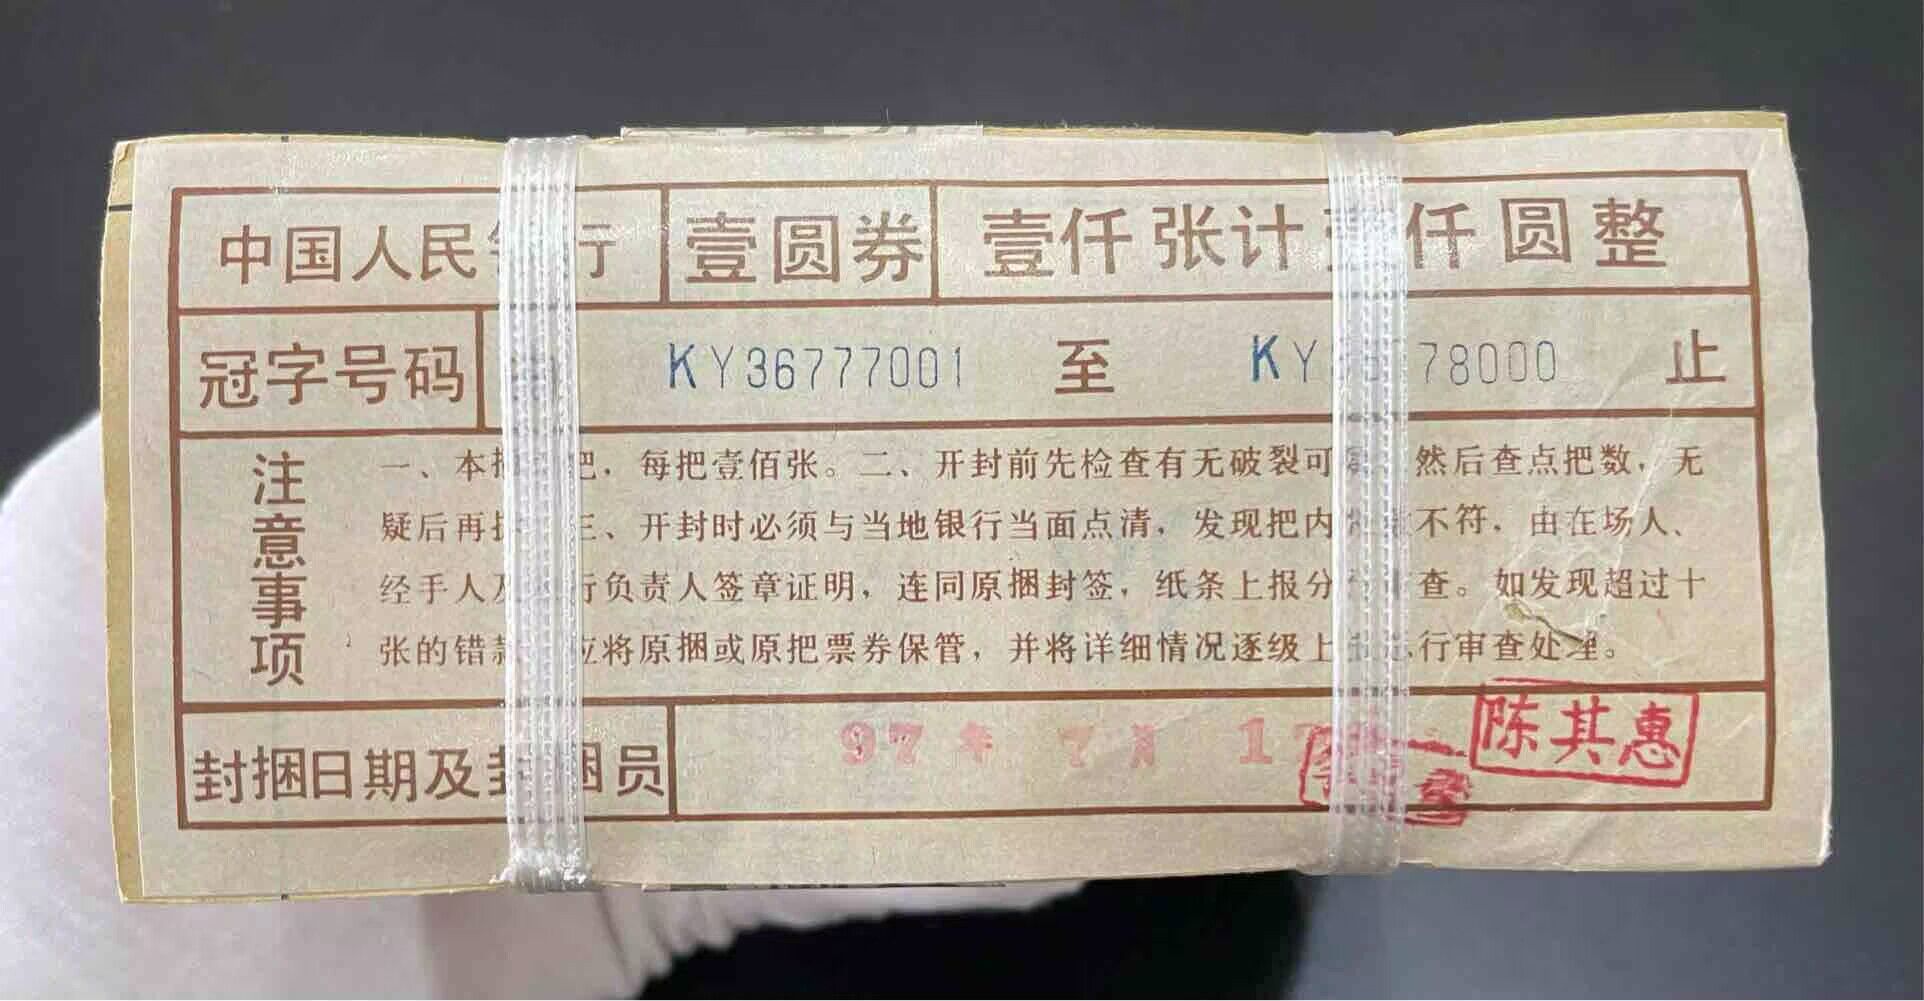 中国人民 行 壹圆券 壹仟张计 仟圆整
冠字号码 KY36777001 至 KY 78000 止
注意事项
一、本 把，每把壹佰张。二、开封前先检查有无破裂可 然后查点把数，无
疑后再 三、开封时必须与当地银行当面点清，发现把内 不符，由在场人、
经手人及 行负责人签章证明，连同原捆封签，纸条上报分 查。如发现超过十
张的错款 应将原捆或原把票券保管，并将详细情况逐级上 行审查处理。
封捆日期及封捆员 97年 7月 1
陈其惠